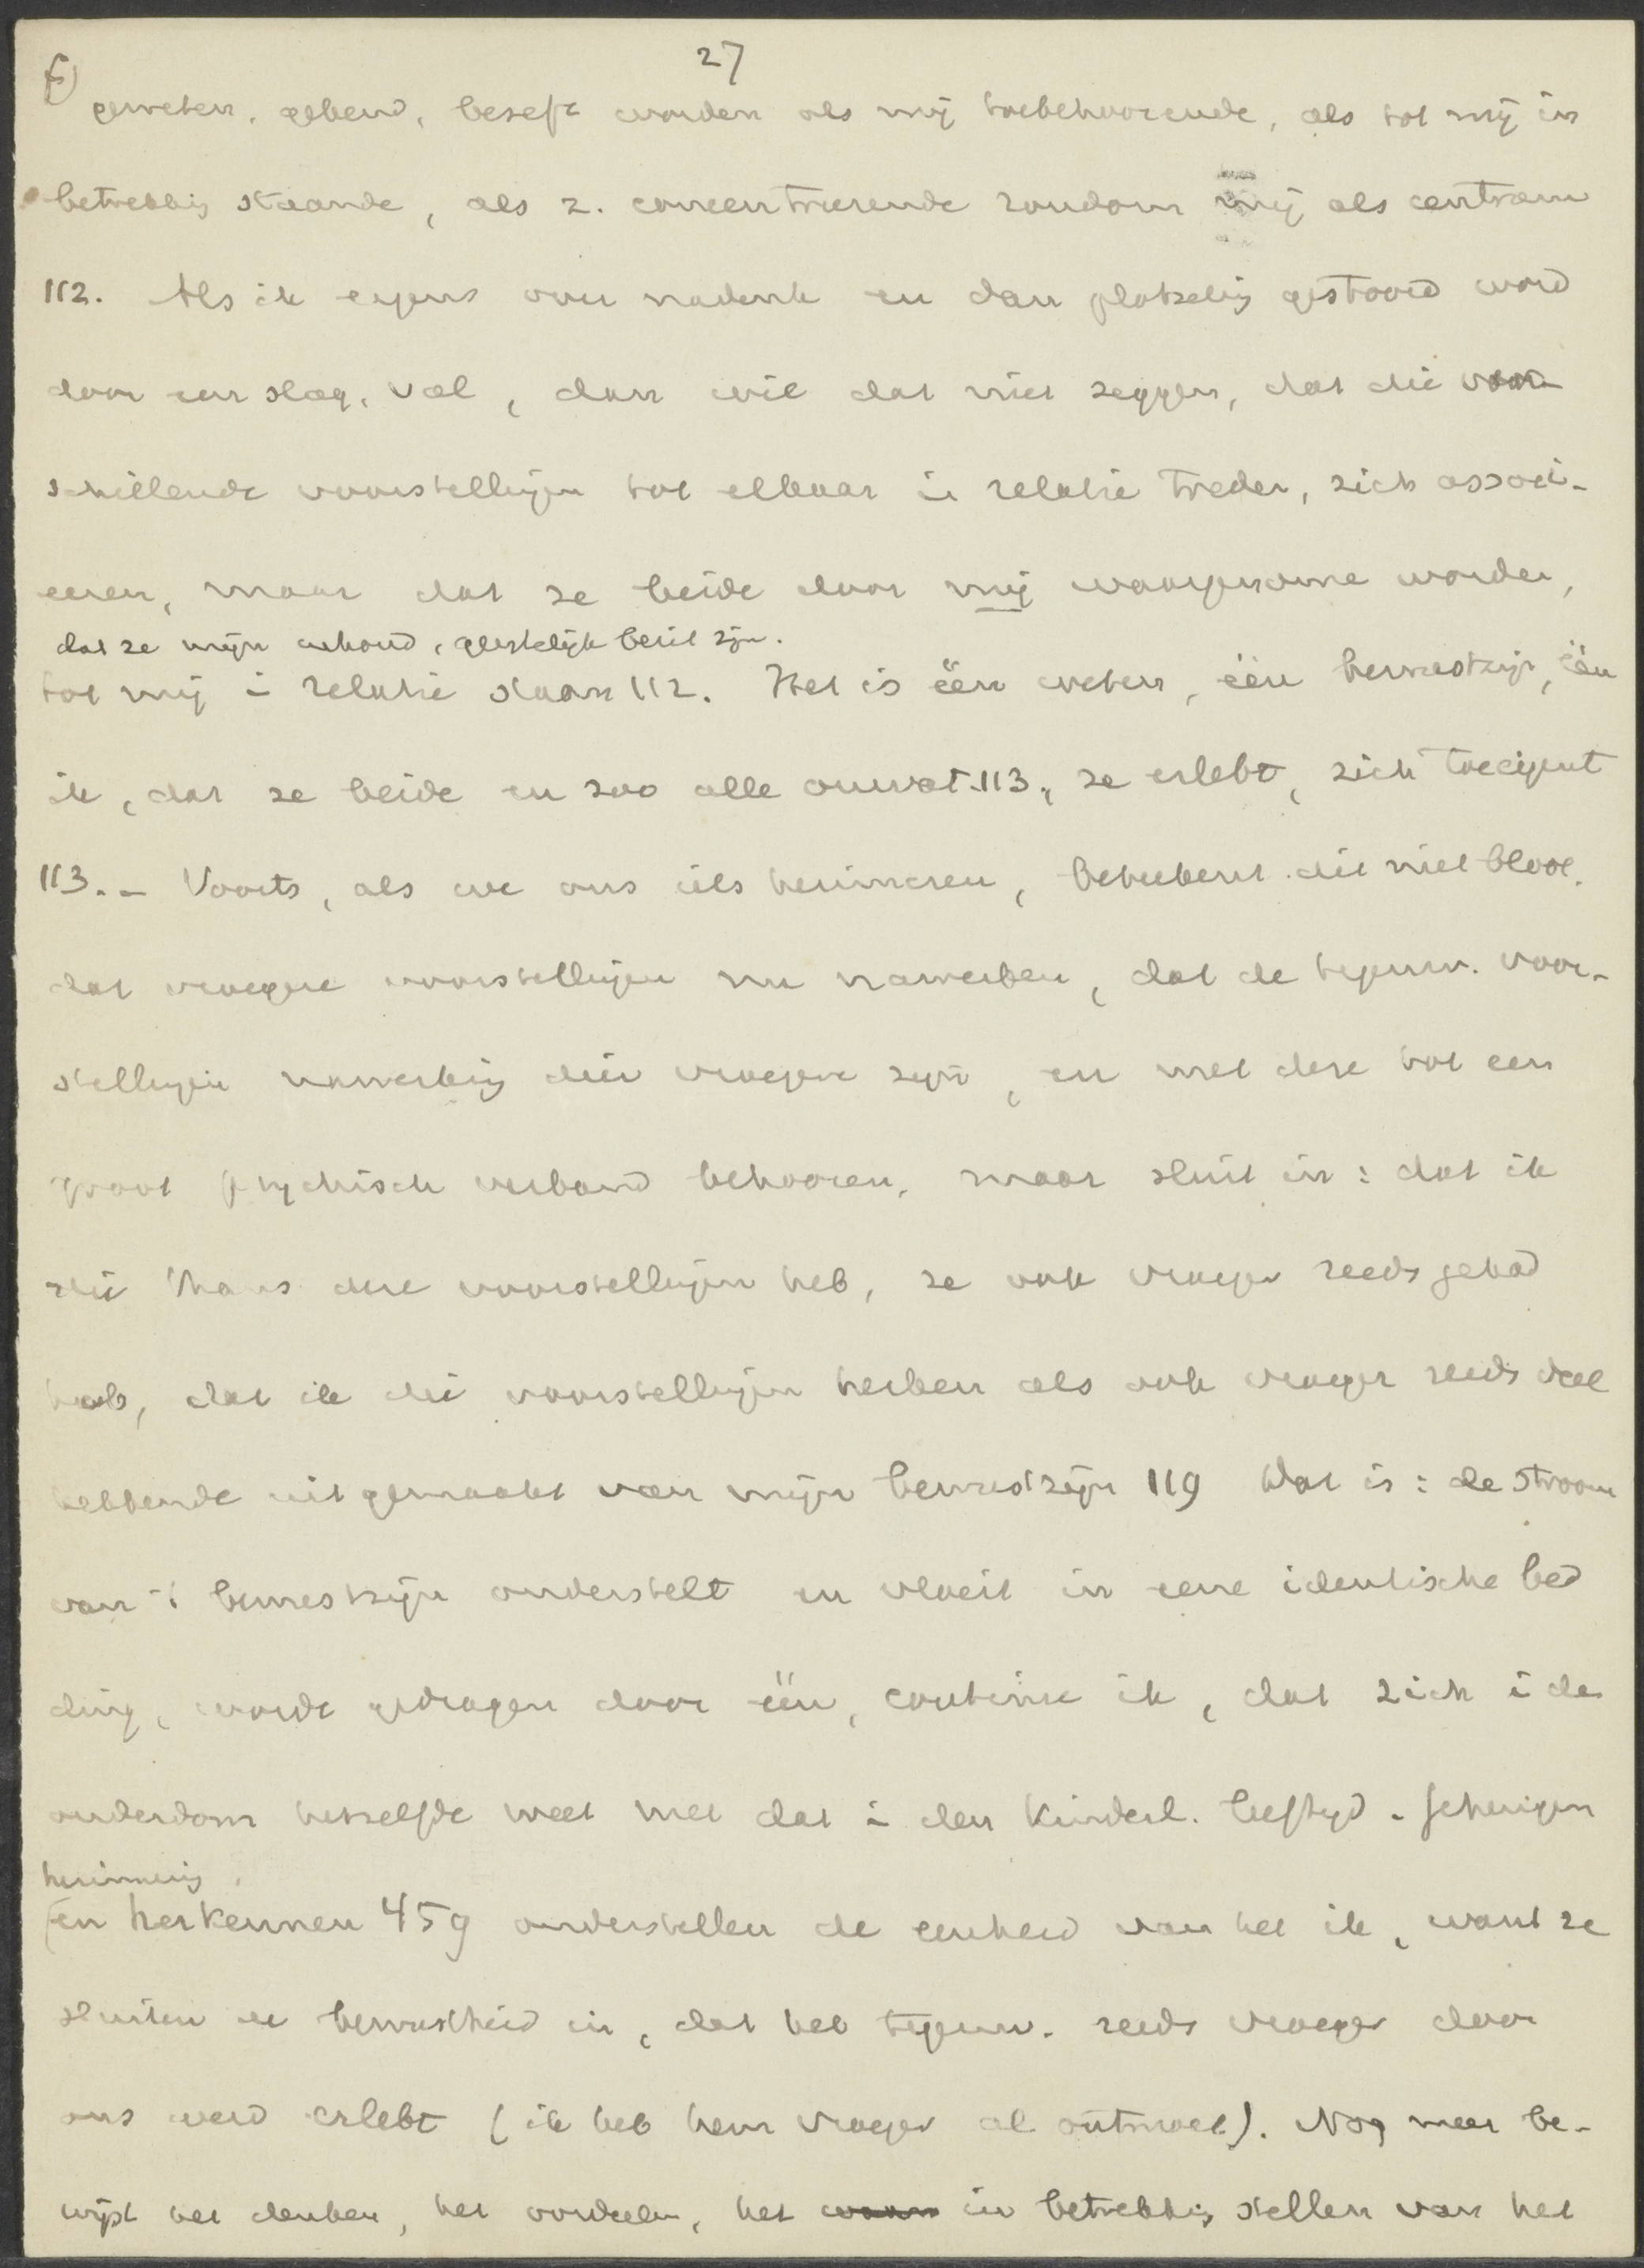 27
f)
geweten, gekend, beseft worden als mij toebehoorende, als tot mij in
betrekking staande, als z. concentreerende rondom mij als centrum
112. Als ik ergens over nadenk en dan plotselig gestoord word
door een slag, val, dan wil dat niet zeggen, dat die ver-
schillende voorstellingen tot elkaar in relatie treden, zich associ-
eeren, maar dat ze beide door mij waargenome worden,
dat ze mijn inhoud, geestelijk bezit zijn.
tot mij in relatie staan 112. Het is één weten, één bewustzijn, één
ik, dat ze beide en zoo alle omvat 113, ze erlebt, zich toeeigent
113. - Voorts, als we ons iets herinneren, beteekent dit niet bloot,
dat vroegere voorstellingen nu nawerken, dat de tegenw. voor-
stellingen nawerking dier vroegere zijn, en met deze tot een
groot psychisch verband behooren, maar sluit in: dat ik
die thans deze voorstellingen heb, ze ook vroeger reeds gehad
heb, dat ik die voorstellingen herken als ook vroeger reeds deel
hebbende uitgemaakt van mijn bewustzijn 119 Dat is: de stroom
van 't bewustzijn onderstelt en vloeit in eene identische bed
ding, wordt gedragen door één, continu ik, dat zich i de
ouderdom hetzelfde weet met dat in den kinderl. leeftijd. Geheugen
herinnering,
en herkennen 459 onderstellen de eenheid van het ik, want ze
sluiten de bewustheid in, dat het tegenw. reeds vroeger door
ons werd erlebt (ik heb hem vroeger al ontmoet). Nog meer be-
wijst het denken, het oordeelen, het in betrekking stellen van het